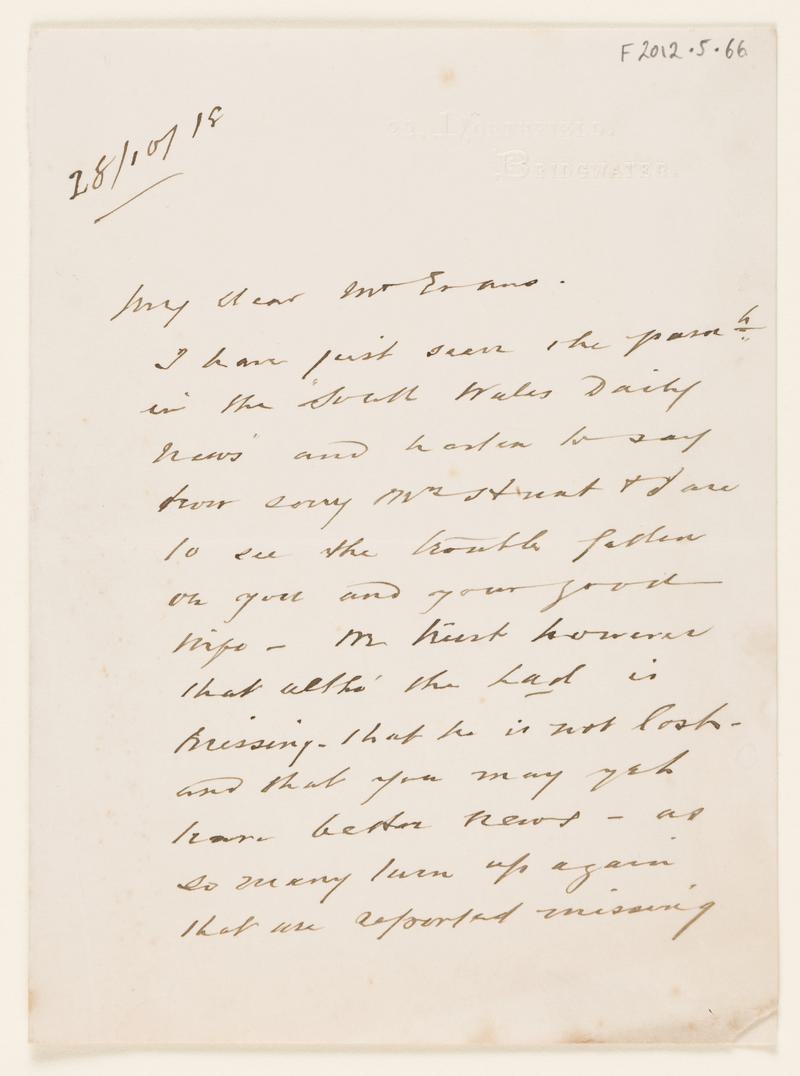 F2012.5.66
28/10/18
Northfield.
Bridgwater.
My dear Mr Evans.
I have just seen the para h
in the "South Wales Daily
News" and hasten to say
how sorry Mrs Hunt & I are
to see the trouble fallen
on you and your good
wife - We trust however
that altho' the lad is
missing - that he is not lost -
and that you may yet
have better news - as
so many turn up again
that are reported missing